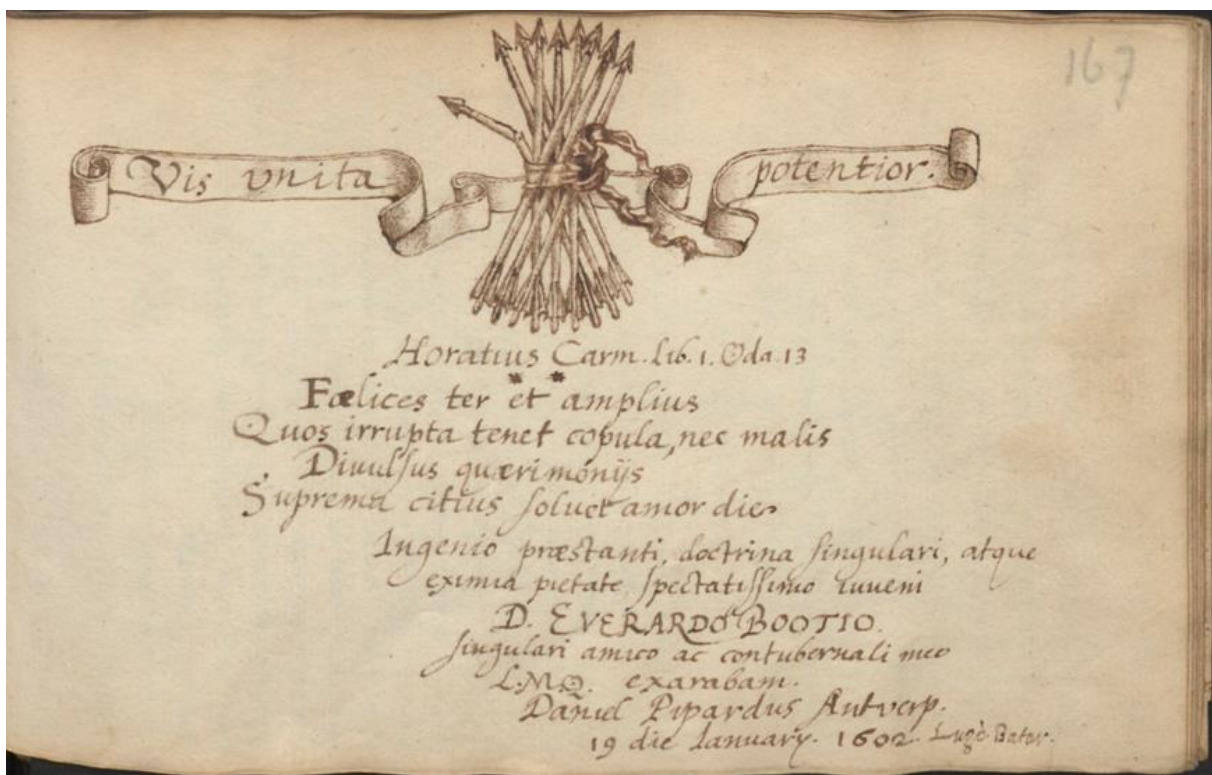 167
Vis vnita potentior.
Horatius Carm. Lib. 1. Oda. 13
Fælices ter et amplius
Quos irrupta tenet copula, nec malis
Divulsus quærimónijs
Suprema citius solvet amor die
Ingenio præstanti, doctrina singulari, atque
eximia pietate spectatissimo iuveni
D. EVERARDO BOOTIO.
singulari amico ac contubernali meo
L.M.Q. exarabam.
Daniel Pipardus Antverp.
19 die Ianuary. 1602. Lugd. Batav.